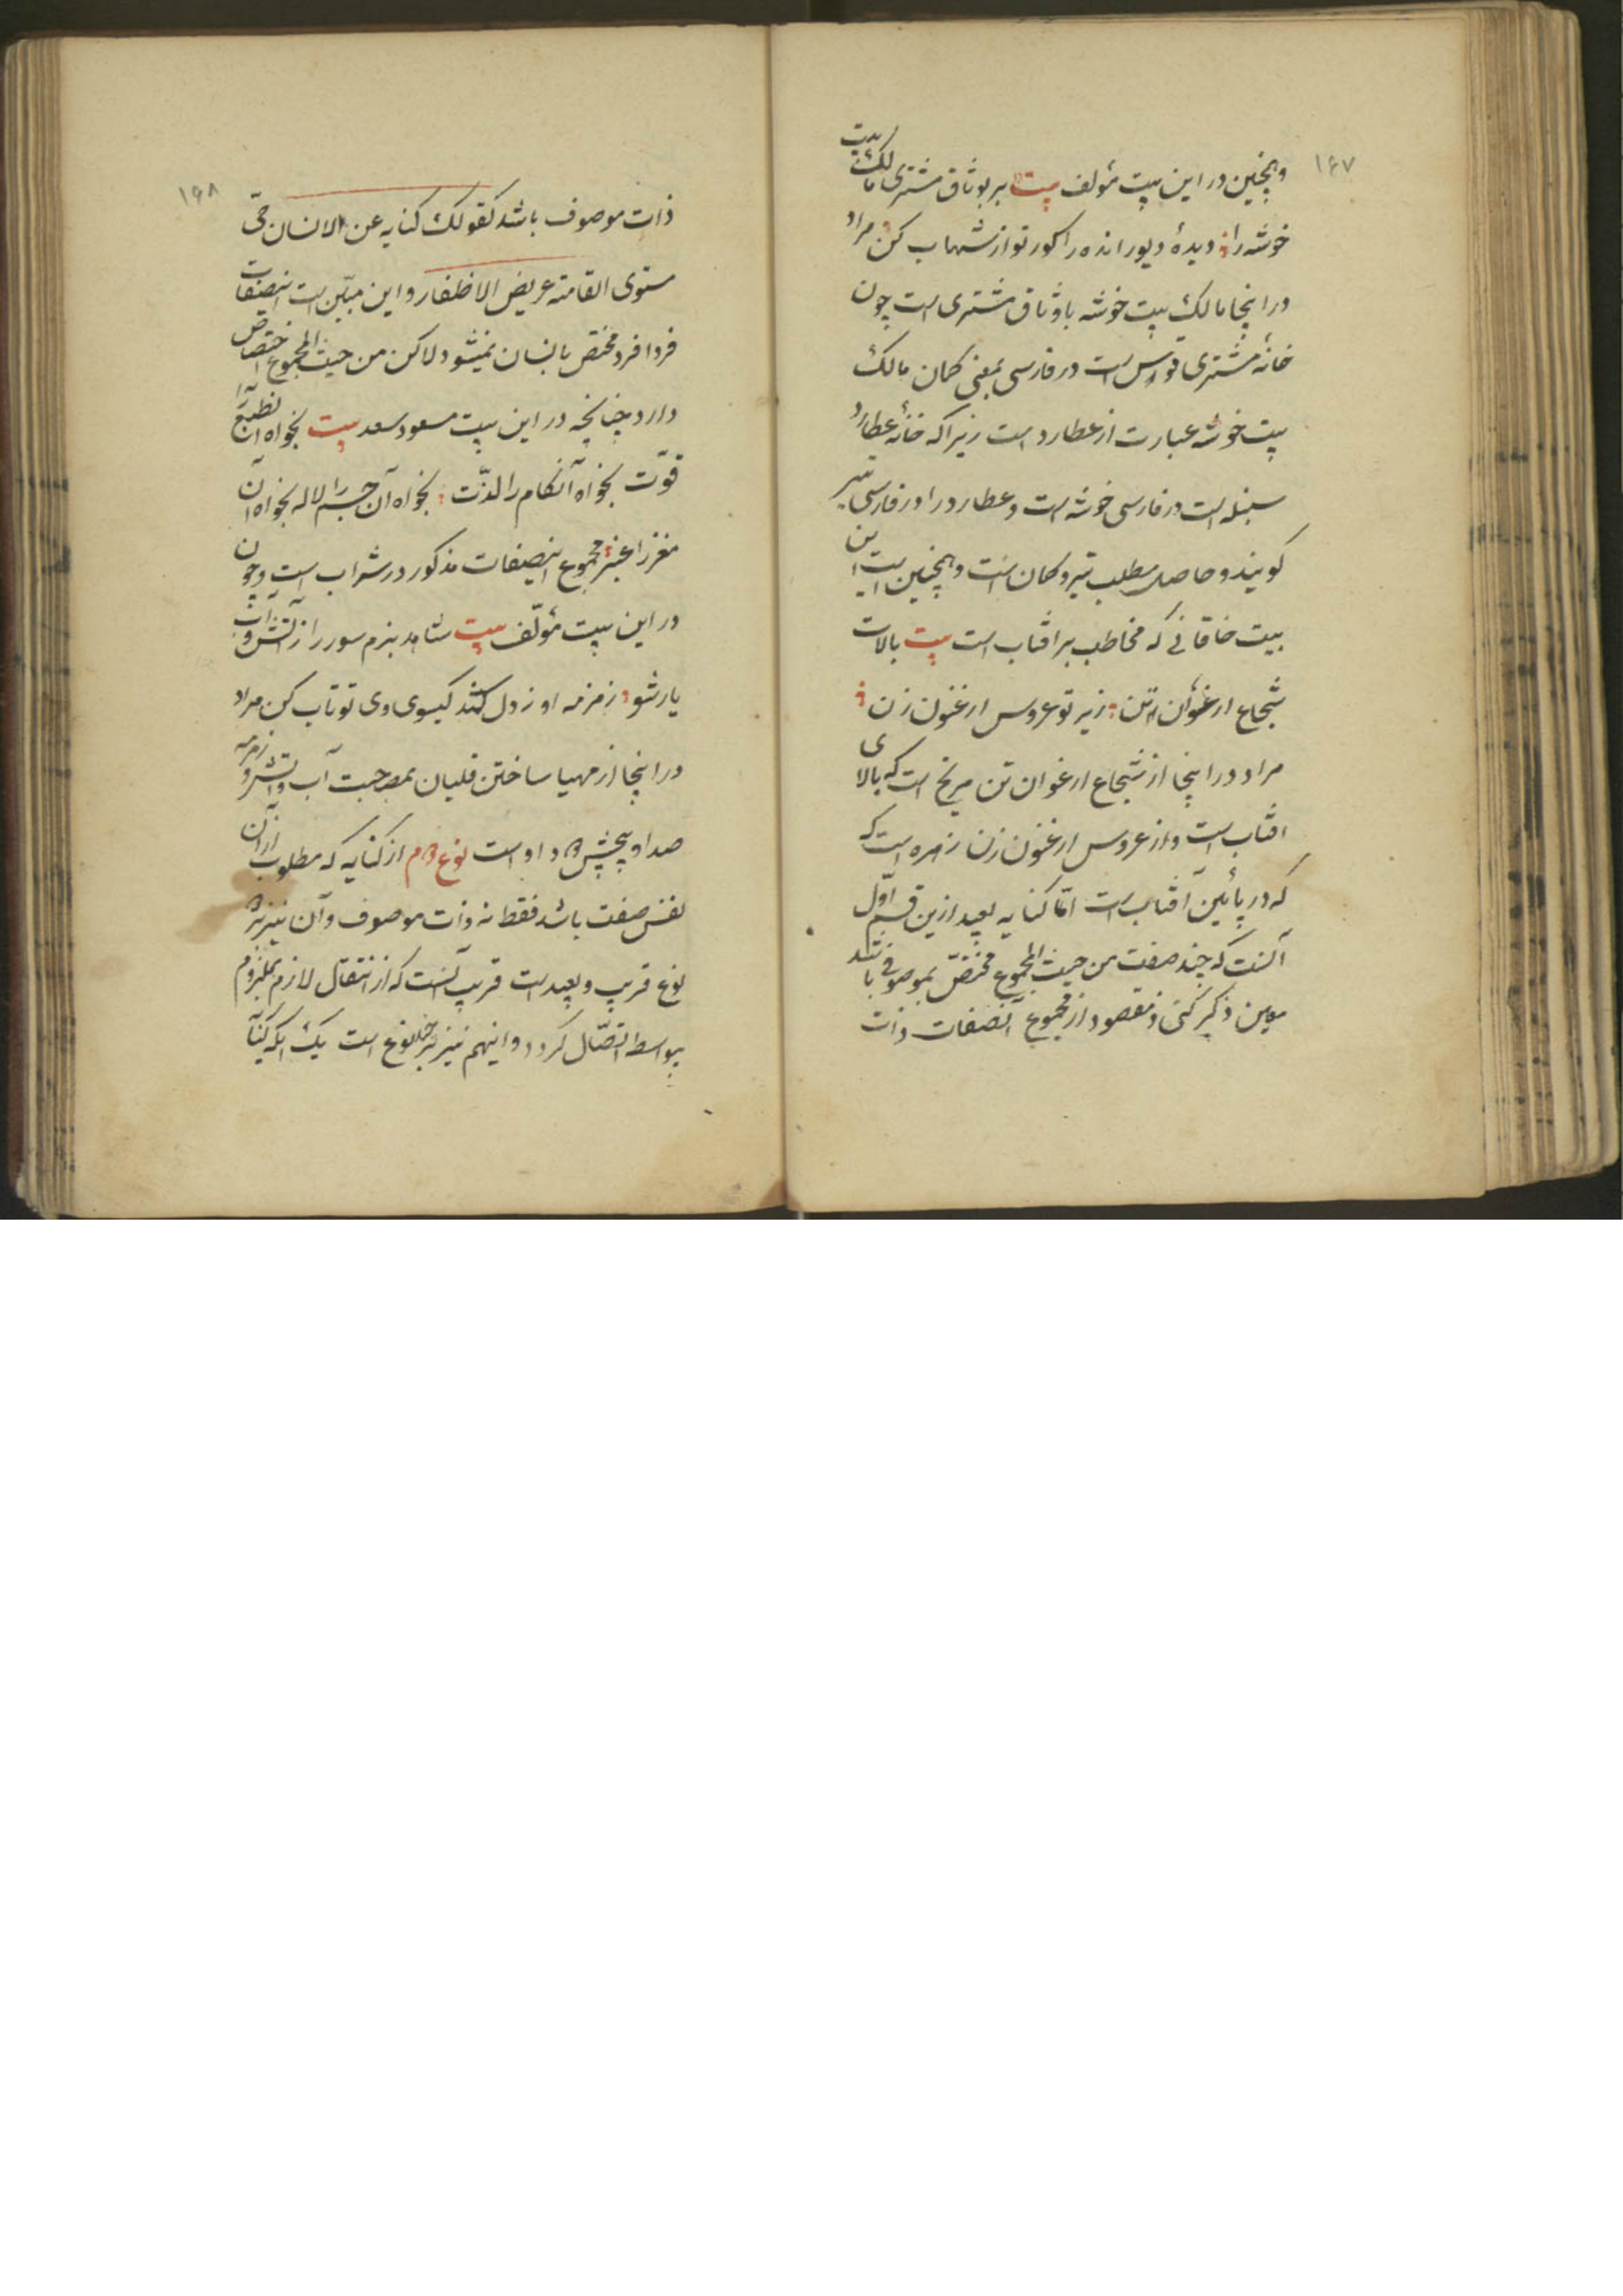 ۱۶۷
وهمچنین در این بیت مؤلف بیت ببر بوثاق مشتری مالک بیت
خوشه را دیدهٔ دیو رانده را کور تو از شهاب کن مراد
در اینجا مالک بیت خوشه با وثاق مشتری است چون
خانهٔ مشتری قوس است در فارسی بمعنی کمان مالک
بیت خوشه عبارت از عطارد است زیرا که خانهٔ عطارد
سنبله است در فارسی خوشه است و عطارد را در فارسی تیر
گویند و حاصل مطلب تیر و کمان است و همچنین است این
بیت خاقانی که مخاطب بر افتاب است بیت بالات
شجاع ارغوان تن زیر تو عروس ارغنون زن
مراد در اینجا از شجاع ارغوان تن مریخ است که بالای
افتاب است و از عروس ارغنون زن زهره است که
که در پائین آفتاب است امّا کنایه بعید ازین قسم اوّل
آنست که چند صفت من حیث المجموع مختصّ بموصوفی باشد
معین ذکر کنی و مقصود از مجموع آنصفات ذات
۱۶۸
ذات موصوف باشد کقولک کنایه عن الانسان حیّ
مستوی القامته عریض الاظفار و این مبیّن است اینصفات
فردا فرد مختص بانسان نمیشود لاکن من حیث المجموع اختصاص
دارد چنانچه در این بیت مسعود سعد بیت بخواه آن طبع را
قوّت بخواه آنکام را لذّت بخواه آن چشم را لاله بخواه آن
مغز را عنبر مجموع اینصفات مذکور در شراب است و چون
در این بیت مؤلّف بیت شاهد بزم سور را ز آتش و آب
یار شو زمزمه او ز دل کشد گیسوی وی تو تاب کن مراد
در اینجا از مهیا ساختن قلیان بمصاحبت آب و آتش و زمزمه
صدا و پیچش دود اوست نوع دوم از کنایه که مطلوب از آن
نفس صفت باشد فقط نه ذات موصوف و آن نیز بر دو
نوع قریب و بعید است قریب آنست که از انتقال لازم بملزوم
بیواسطه اتصّال گردد و اینهم نیز بر چند نوع است یک آنکه